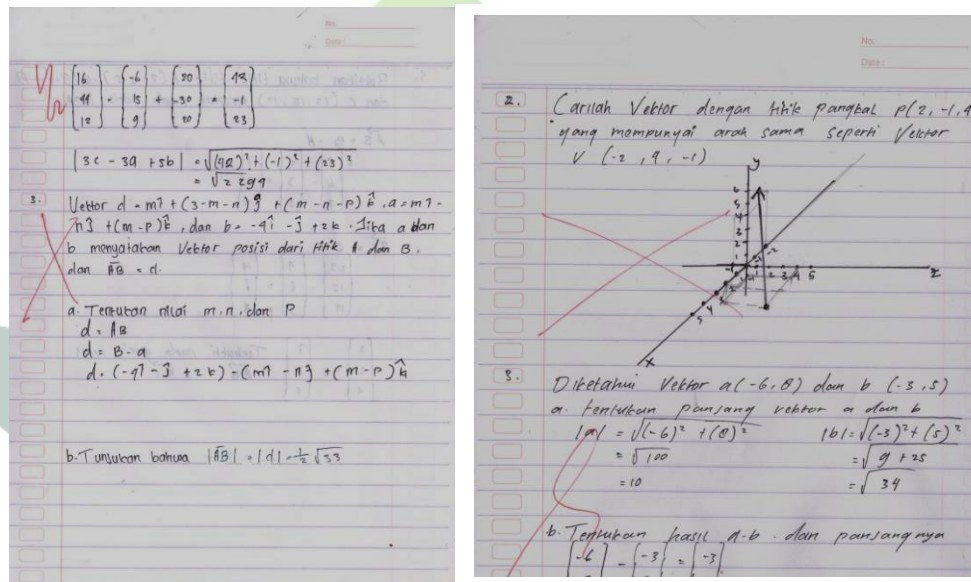 No.
Date:
[16] [-6] [20] [42]
[44] - [15] + [-30] = [-1]
[12] [9] [20] [23]
|3c - 3a + 5b| = √(42)² + (-1)² + (23)²
= √2294
3. Vektor d = mî + (3-m-n)ĵ + (m-n-p)k̂, a = mî -
nĵ + (m-p)k̂, dan b = -4î - ĵ + 2k. Jika a dan
b menyatakan Vektor posisi dari titik A dan B,
dan AB = d.
a. Tentukan nilai m, n, dan P
d = AB
d = B - a
d = (-4î - ĵ + 2k) - (mî - nĵ + (m-p)k̂
b. Tunjukan bahwa |AB| = |d| = ½ √33
No.
Date:
2. Carilah Vektor dengan titik pangkal P(2, -1, 4
yang mempunyai arah sama seperti Vektor
V (-2, 4, -1)
y
z
x
3. Diketahui Vektor a(-6, 8) dan b (-3, 5)
a. tentukan panjang vektor a dan b
|a| = √(-6)² + (8)² |b| = √(-3)² + (5)²
= √100 = √9 + 25
= 10 = √34
b. Tentukan hasil a-b. dan panjangnya
[-6] - [-3] = [-3]